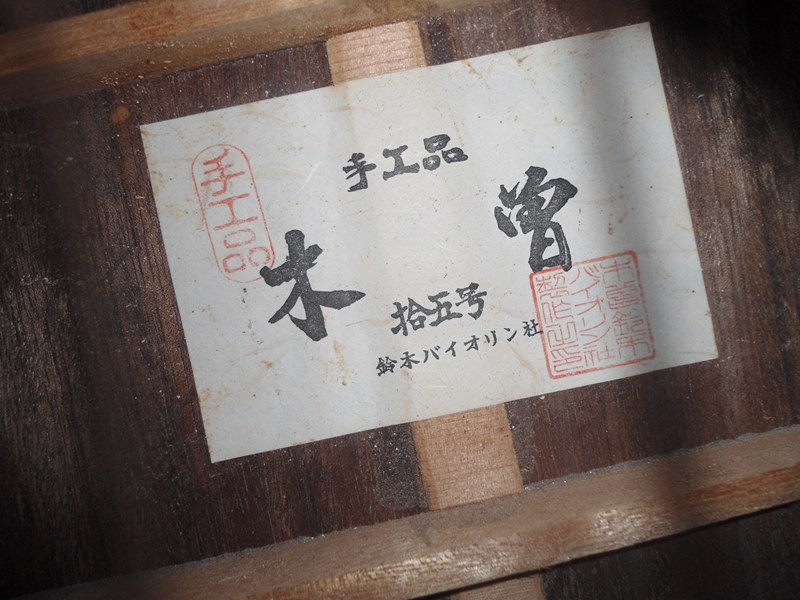 手工品
手工品
木曽
拾五号
鈴木バイオリン社
木曽鈴木
バイオリン社
製作之印